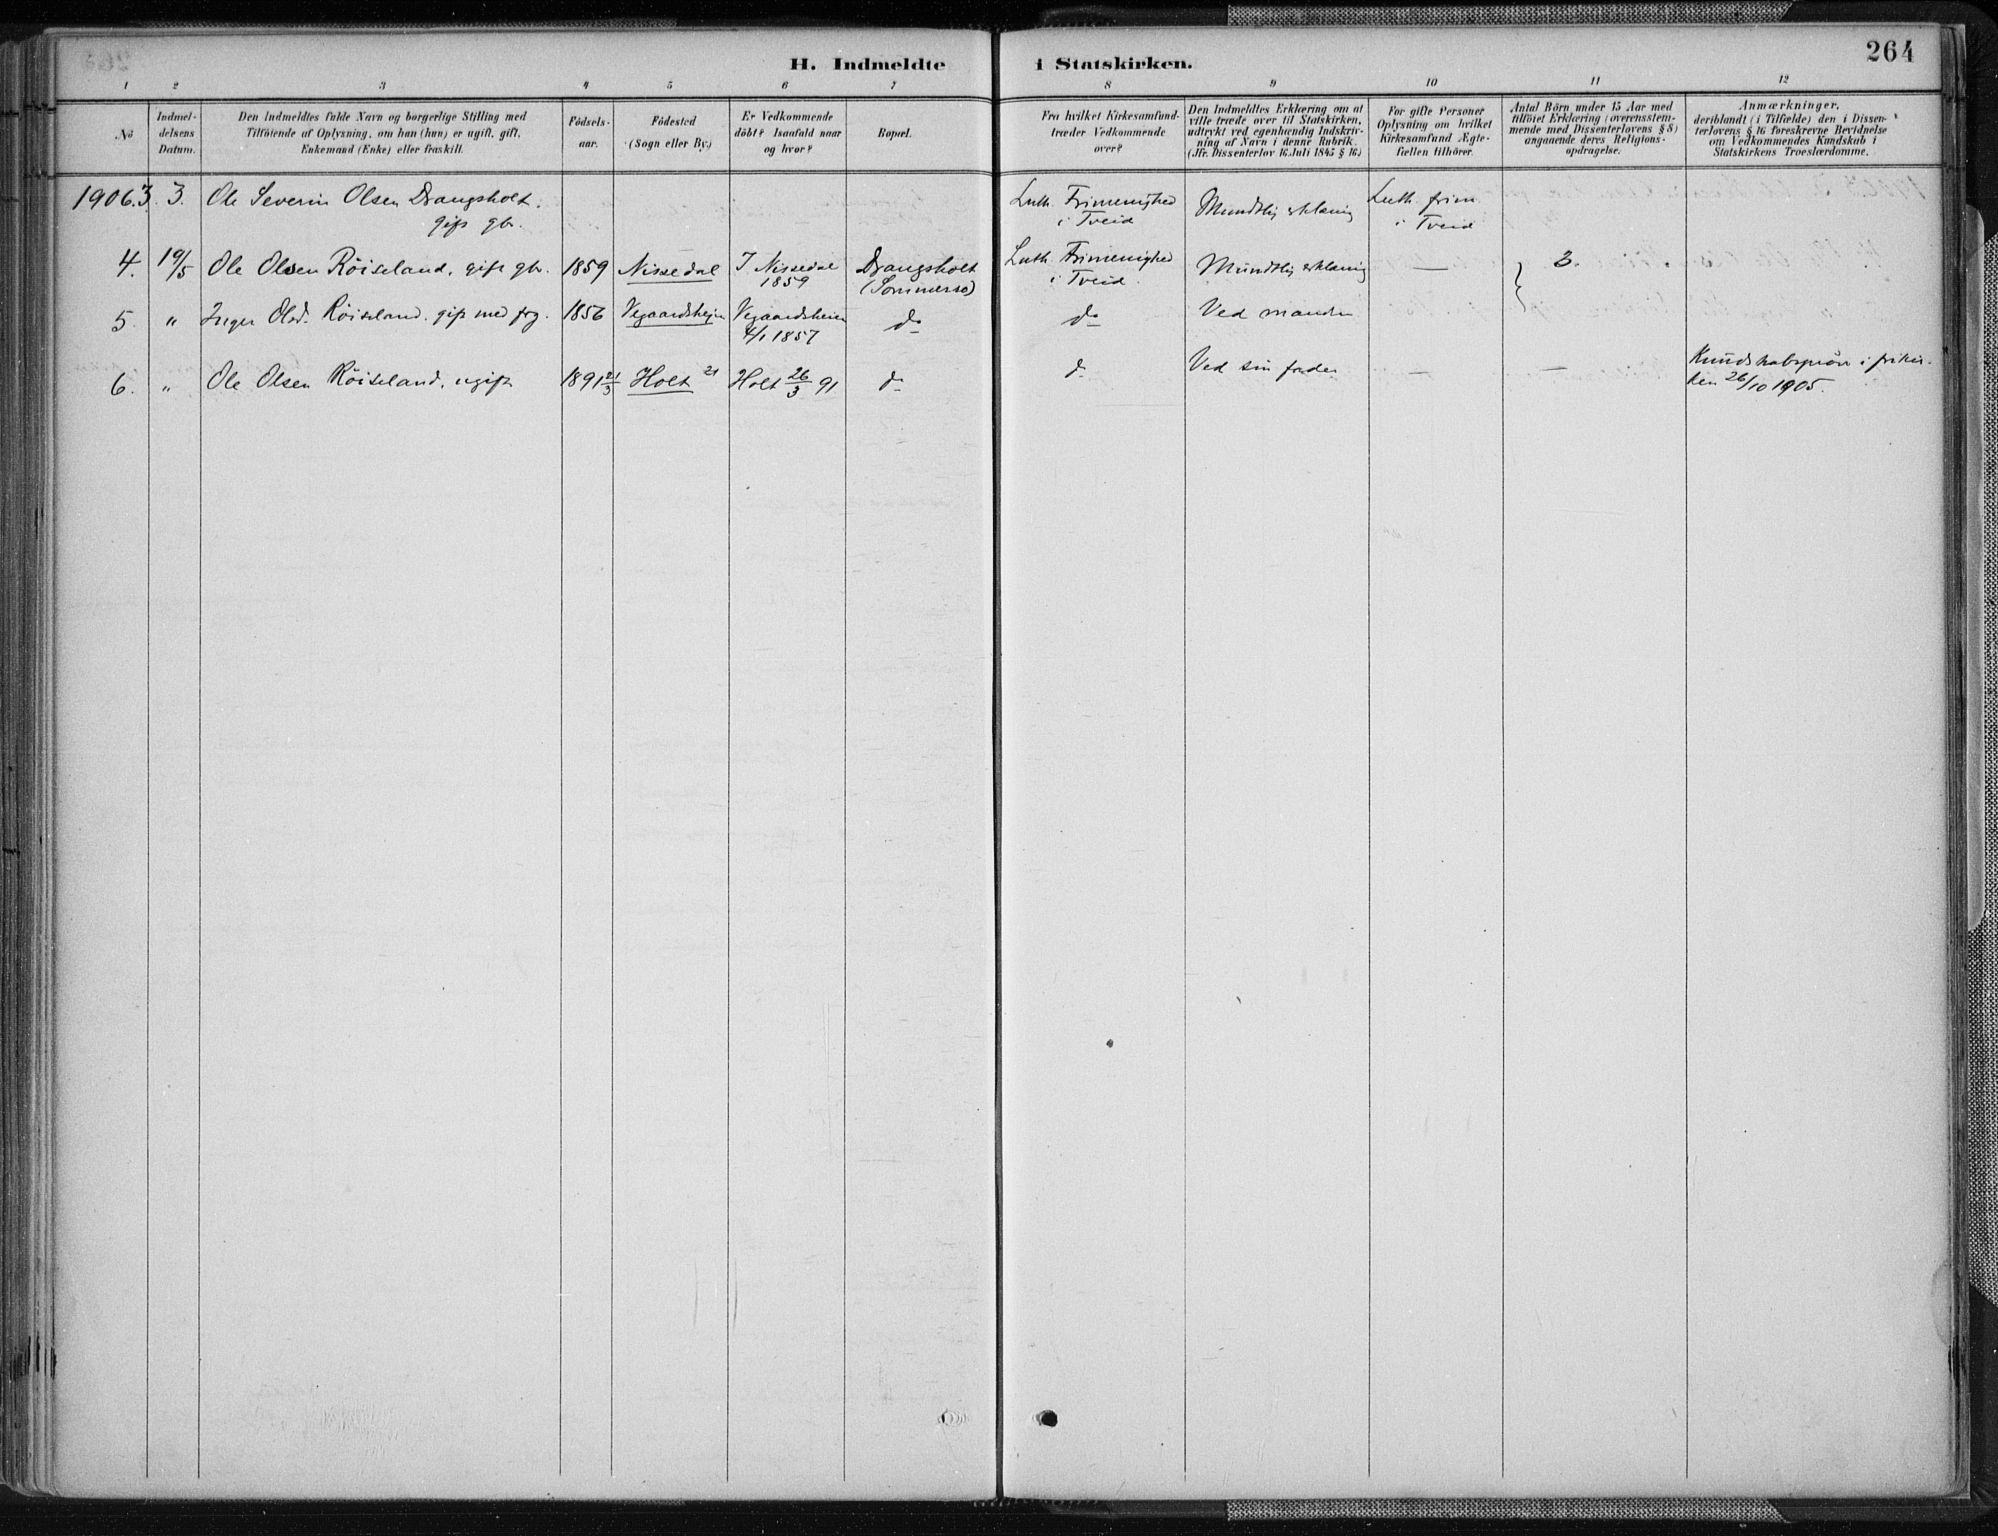 264
H. Indmeldte i Statskirken.
1 2 3 4 5 6 7 8 9 10 11 12
No
Indmel-
delsens
Datum.
Den Indmeldtes fulde Navn og borgerlige Stilling med
Tilföiende af Oplysning, om han (hun) er ugift, gift,
Enkemand (Enke) eller fraskilt.
Födsels-
aar.
Födested
(Sogn eller By.)
Er Vedkommende
döbt? Isaafald naar
og hvor?
Bopæl.
Fra hvilket Kirkesamfund
træder Vedkommende
over?
Den Indmeldtes Erklæring om at
ville træde over til Statskirken,
udtrykt ved egenhændig Indskriv-
ning af Navn i denne Rubrik.
(Jfr. Dissenterlov 16. Juli 1845 § 16)
For gifte Personer
Oplysning om hvilket
Kirkesamfund Ægte-
fællen tilhörer.
Antal Börn under 15 Aar med
tilföiet Erklæring (overensstem-
mende med Dissenterlovens § 8)
angaaende deres Religions-
opdragelse.
Anmærkninger,
deriblandt (i Tilfælde) den i Dissen-
terlovens § 16 foreskrevne Bevidnelse
om Vedkommendes Kundskab i
Statskirkens Troeslærdomme.
1906. 3. 3. Ole Severin Olsen Drangsholt.
gift gbr.
Luth. Frimenighed
i Tveid
Mundtlig erklæring
Luth. frim.
i Tveid
4. 19/5 Ole Olsen Röiseland, gift gbr. 1859 Nissedal
I Nissedal
1859
Drangsholt
Luth. Frimenighed
i Tveid.
Mundtlig erklæring — 3.
5. " Inger Olsd. Röiseland. gift med frg. 1856 Vegaardshejen
Vegaardsheien
4/1 1857
do do Ved manden
6. " Ole Olsen Röiseland, ugift 1891 21/3 Holt 21 Holt 26/3 91 do do Ved sin fader — —
Kundskabspröve i frikir-
ken 26/10 1905.